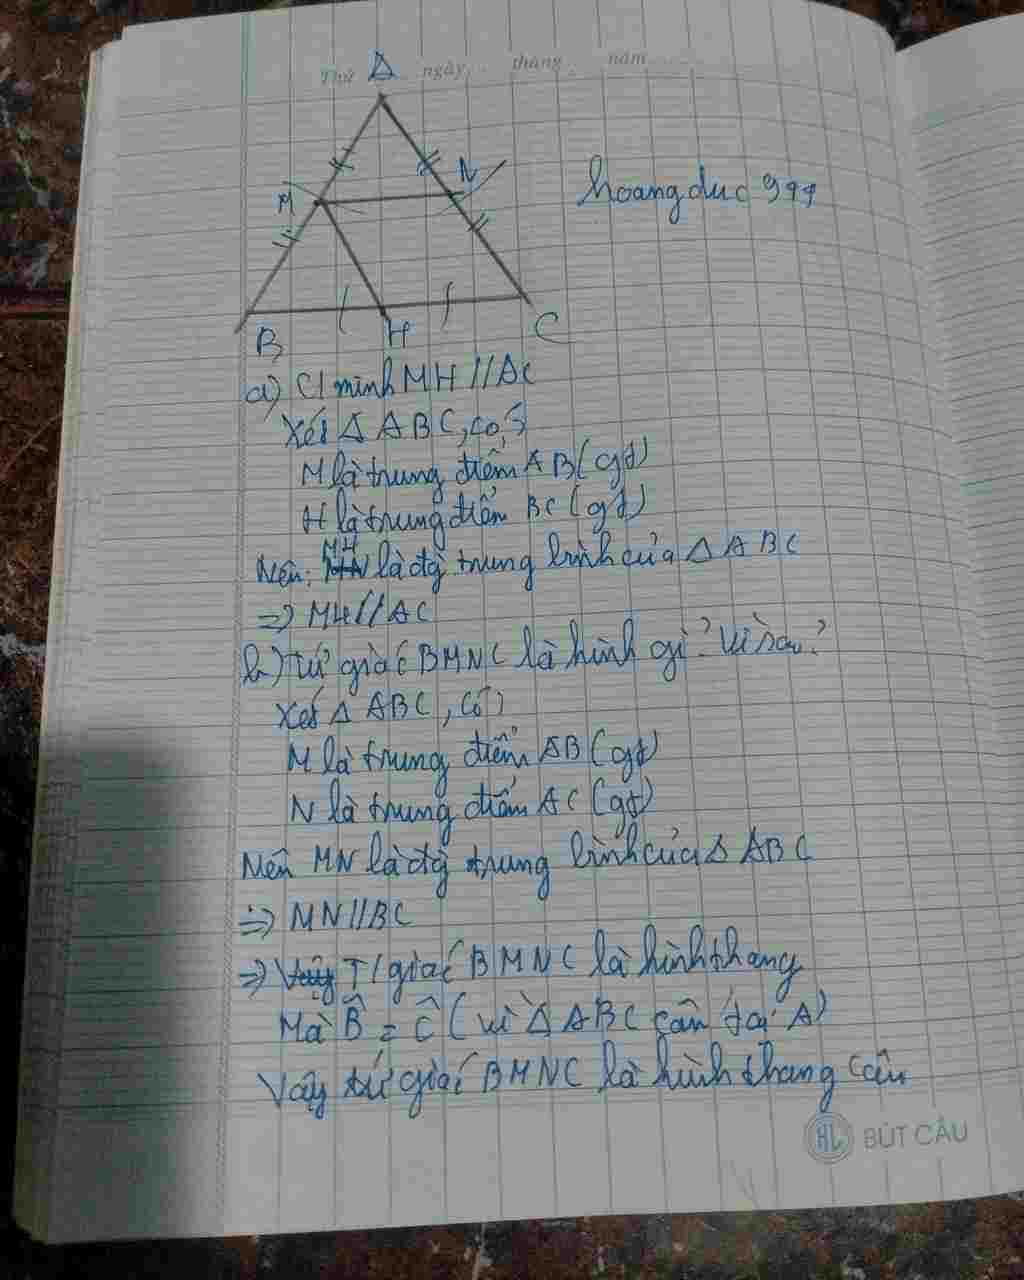 Thứ ngày tháng năm
A
M
N
hoangduc999
B
H
C
a) C/minh MH // AC
Xét Δ ABC, có:
M là trung điểm AB (gt)
H là trung điểm BC (gt)
Nên: MH là đg trung bình của Δ ABC
=> MH // AC
b) Tứ giác BMNC là hình gì? Vì sao?
Xét Δ ABC, có:
M là trung điểm AB (gt)
N là trung điểm AC (gt)
Nên MN là đg trung bình của Δ ABC
=> MN // BC
=> T/giác BMNC là hình thang
Mà B̂ = Ĉ (vì Δ ABC cân tại A)
Vậy tứ giác BMNC là hình thang cân
HL BÚT CÂU